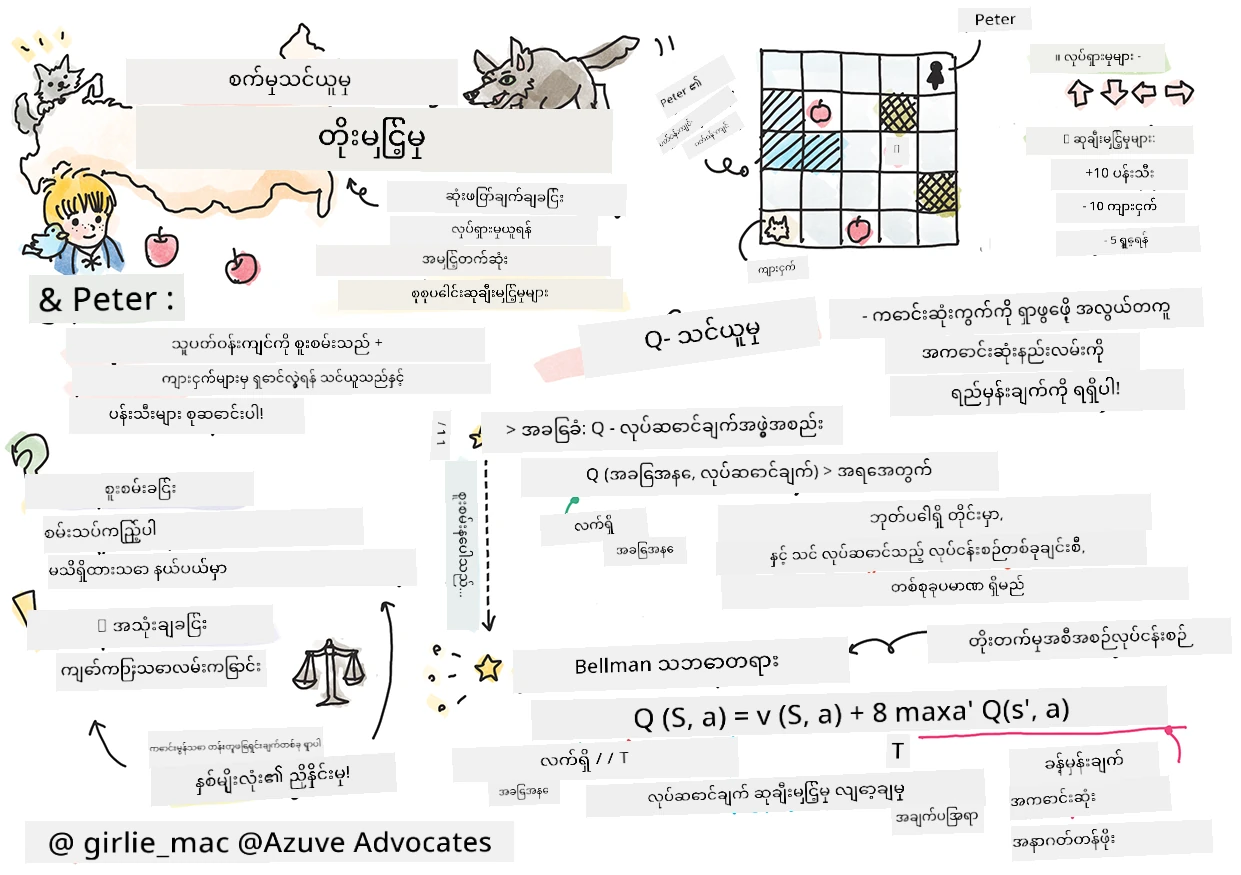 စက်မှသင်ယူမှု
တိုးမြှင့်မှု
ဆုံးဖြတ်ချက်ချခြင်း
လှုပ်ရှားမှုယူရန်
အမြှင့်တက်ဆုံး
စုစုပေါင်းဆုချီးမြှင့်မှုများ
& Peter :
သူပတ်ဝန်းကျင်ကို စူးစမ်းသည် +
ကျားငှက်များမှ ရှောင်လွှဲရန် သင်ယူသည်နှင့်
ပန်းသီးများ စုဆောင်းပါ!
စူးစမ်းခြင်း
စမ်းသပ်ကြည့်ပါ
မသိရှိထားသော နယ်ပယ်မှာ
အသုံးချခြင်း
ကျော်ကြားသောလမ်းကြောင်း
ကောင်းမွန်သော တန်းတူဖြေရှင်းချက်တစ်ခု ရှာပါ
နှစ်မျိုးလုံး၏ ညှိနှိုင်းမှု!
@ girlie_mac @Azuve Advocates
Peter
Peter ၏
ကျားငှက်
။ လှုပ်ရှားမှုများ -
ဆုချီးမြှင့်မှုများ:
+10 ပန်းသီး
- 10 ကျားငှက်
- 5 ရွှေ့ရန်
Q- သင်ယူမှု
- ကောင်းဆုံးကွက်ကို ရှာဖွေဖို့ အလွယ်တကူ
အကောင်းဆုံးနည်းလမ်းကို
ရည်မှန်းချက်ကို ရရှိပါ!
/ 1 1
> အခြေခံ: Q - လုပ်ဆောင်ချက်အဖွဲ့အစည်း
Q (အခြေအနေ, လုပ်ဆောင်ချက်) > အရအေတွက်
လက်ရှိ
အခြေအနေ
ဘုတ်ပေါ်ရှိ တိုင်းမှာ,
နှင့် သင် လုပ်ဆောင်သည့် လုပ်ငန်းစဉ်တစ်ခုချင်းစီ,
တစ်စုခုပမာဏ ရှိမည်
တိုးတက်မှုအစီအစဉ်လုပ်ငန်းစဉ်
Bellman သဘောတရား
Q (S, a) = v (S, a) + 8 maxa' Q(s', a)
လက်ရှိ / / T
အခြေအနေ
လုပ်ဆောင်ချက် ဆုချီးမြှင့်မှု လျှော့ချမှု
T
အချက်ပြအရာ
ခန့်မှန်းချက်
အကောင်းဆုံး
အနာဂတ်တန်ဖိုး